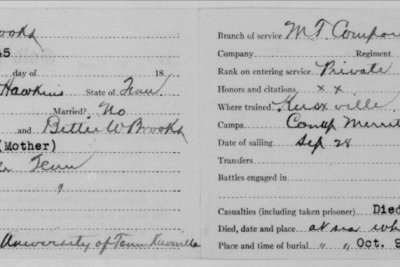 Brooks
45
day of 18
Hawkins State of Tenn
Married? No
and Bettie W Brooks
(Mother)
Tenn
University of Tenn Knoxville
Branch of service M.T. Compan
Company Regiment
Rank on entering service Private
Honors and citations x x
Where trained Knoxville
Camps Camp Merritt
Date of sailing Sep 28
Transfers
Battles engaged in
Casualties (including taken prisoner) Died
Died, date and place at sea whi
Place and time of burial " " Oct. 9